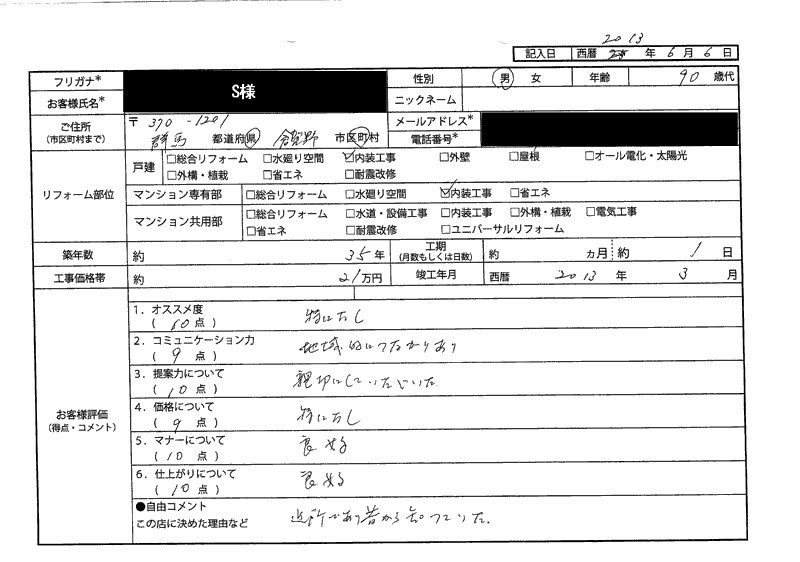 2013
記入日 西暦 年 6月 6日
フリガナ* S様 性別 男 女 年齢 90 歳代
お客様氏名* ニックネーム
ご住所 〒370-1201 メールアドレス*
(市区町村まで) 群馬 都道府県 倉賀野 市区町村 電話番号*
リフォーム部位
戸建 □総合リフォーム □水廻り空間 ☑内装工事 □外壁 □屋根 □オール電化・太陽光
□外構・植栽 □省エネ □耐震改修
マンション専有部 □総合リフォーム □水廻り空間 ☑内装工事 □省エネ
マンション共用部 □総合リフォーム □水道・設備工事 □内装工事 □外構・植栽 □電気工事
□省エネ □耐震改修 □ユニバーサルリフォーム
築年数 約 35年 工期 (月数もしくは日数) 約 ヵ月 約 1日
工事価格帯 約 21万円 竣工年月 西暦 2013 年 3 月
お客様評価
(得点・コメント)
1．オススメ度 特になし
( 10点 )
2．コミュニケーション力 地域的につながりあり
( 9点 )
3．提案力について 親切にしていただいた
( 10点 )
4．価格について 特になし
( 9点 )
5．マナーについて 良好
( 10点 )
6．仕上がりについて 良好
( 10点 )
●自由コメント
この店に決めた理由など 近所であり昔から知っていた。